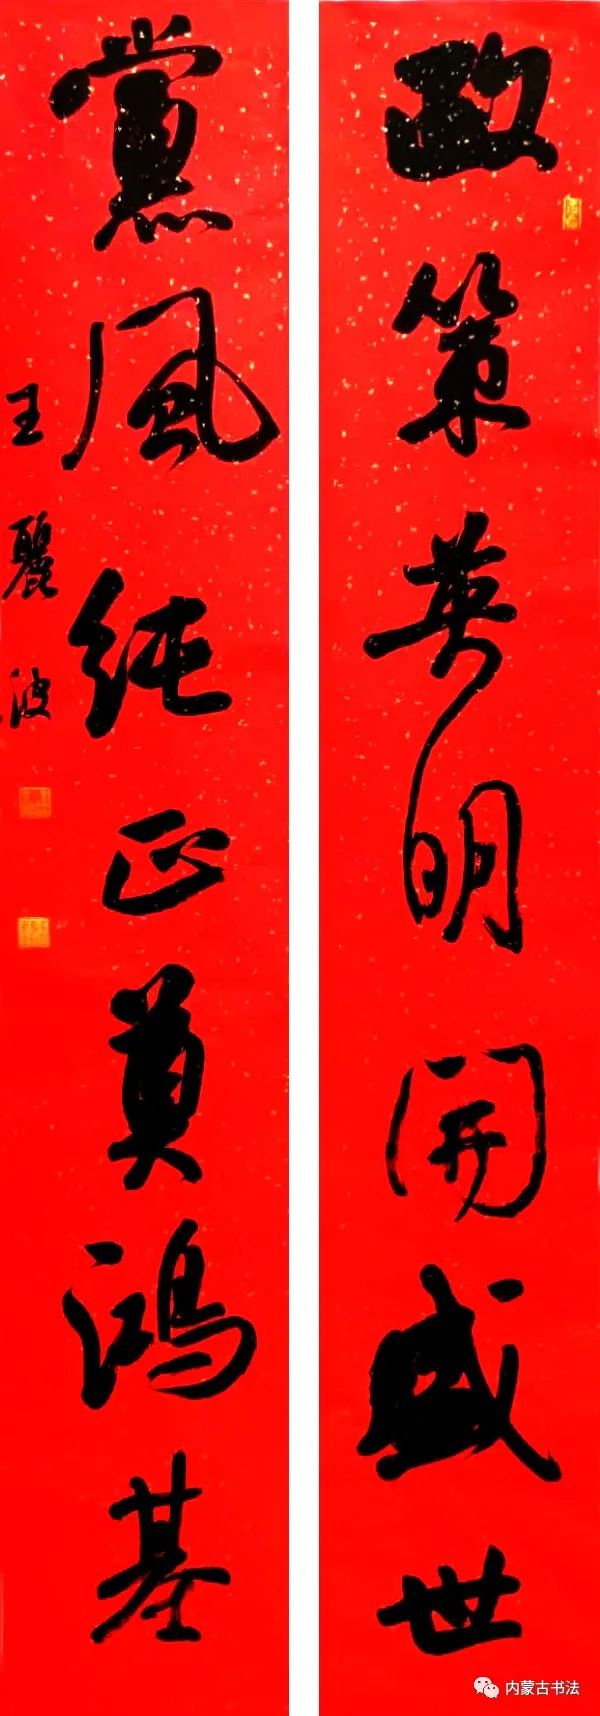 政策英明開盛世
黨風純正奠鴻基
王麗波
内蒙古书法